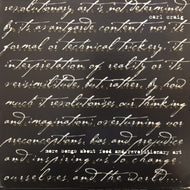 revolutionary art is not determined
carl craig
by its avantgarde content nor its
formal or technical trickery, its
interpretation of reality or its
verisimilitude, but, rather, by how
much it revolutionises our thinking
and imagination; overturning our
preconceptions, bias and prejudice
more songs about food and revolutionary art
and inspiring us to change
ourselves and the world.